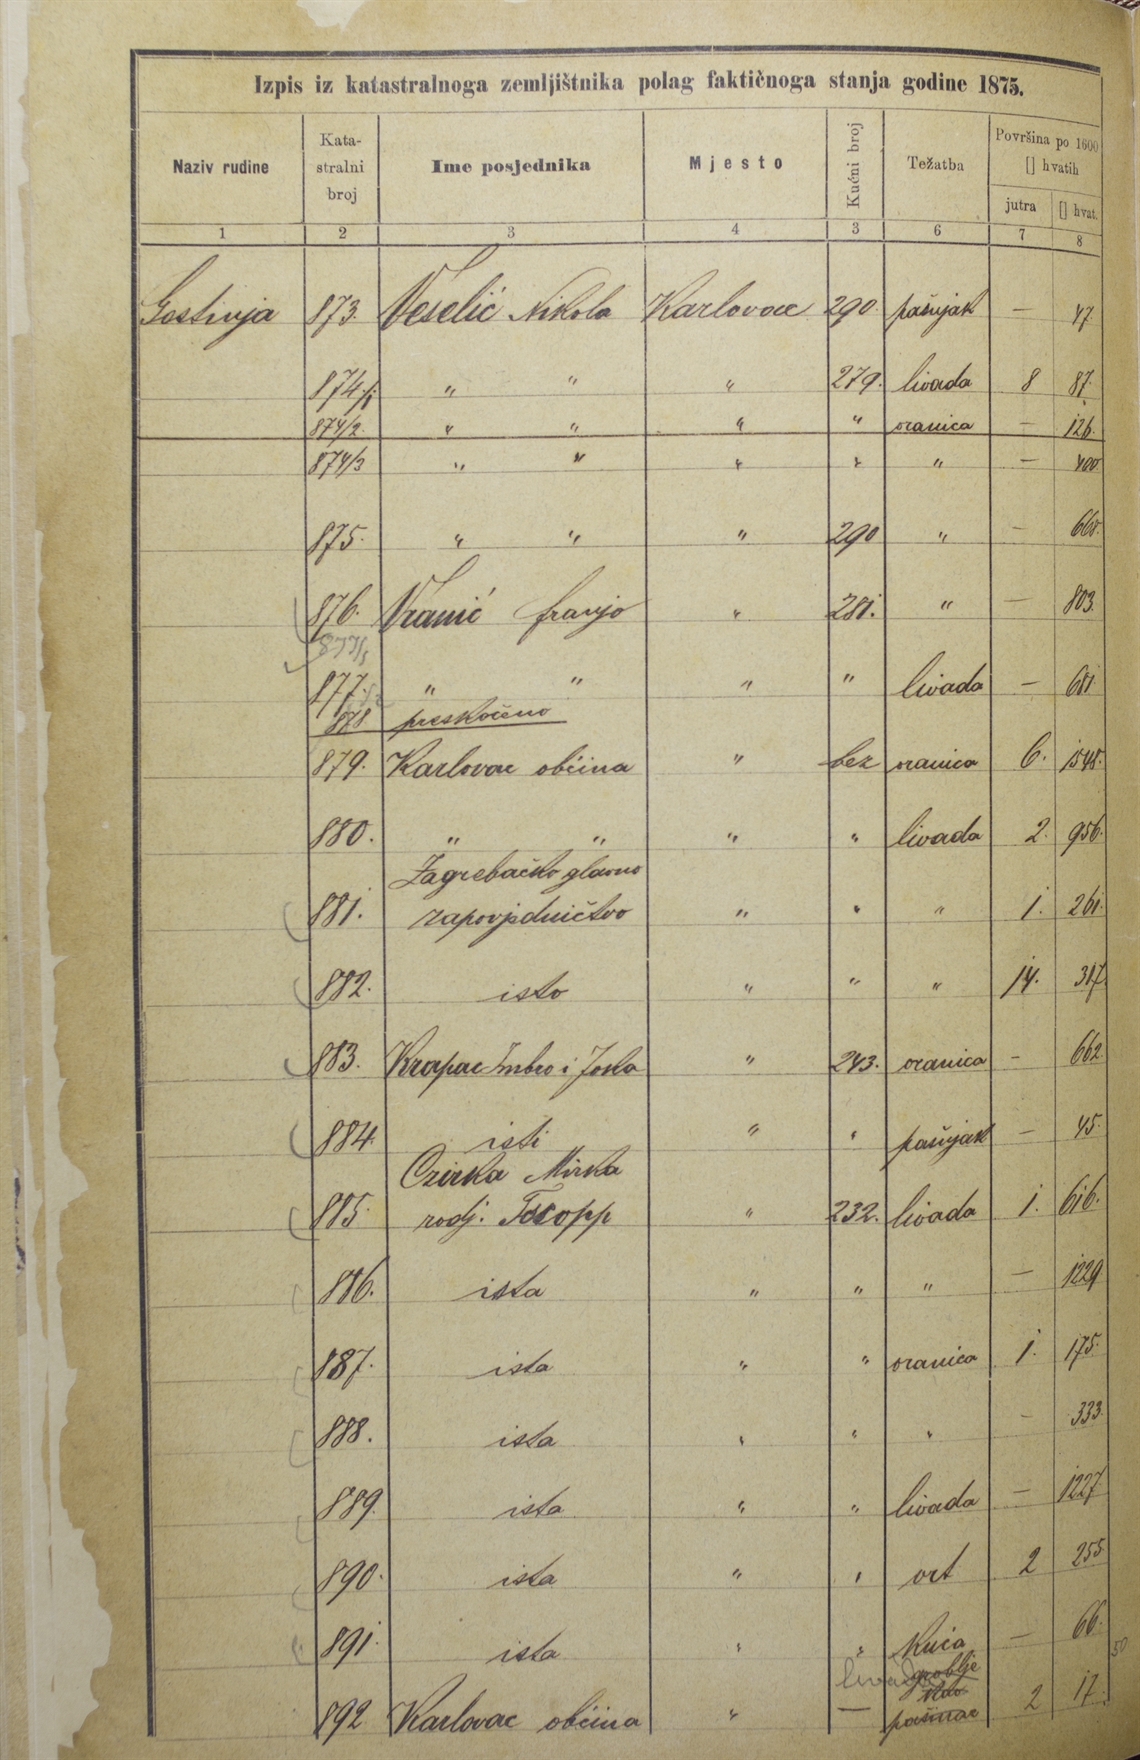 Izpis iz katastralnoga zemljištnika polag faktičnoga stanja godine 1875.
Naziv rudine Kata-stralni broj Ime posjednika Mjesto Kućni broj Težatba Površina po 1600 [] hvatih
jutra [] hvat.
1 2 3 4 3 6 7 8
Gostinja 873. Veselić Nikola Karlovac 290. pašnjak — 47.
874/1 " " " 279. livada 8 87.
874/2. " " " " oranica — 126.
874/3 " " " " " — 400.
875. " " " 290 " — 668.
876. Vranić franjo " 281. " — 803.
877/1
877. " " " " livada — 681.
878 preskočeno
879. Karlovac občina " bez oranica 6. 1548.
880. " " " " livada 2. 956.
Zagrebačko glavno
881. zapovjedničtvo " " " 1. 261.
882. isto " " " 14. 317.
883. Krapac Imbro i Joska " 243. oranica - 662.
884. isti " " pašnjak — 45.
Czirka Mirka
885. rodj. " 232. livada 1. 616.
886. ista " " " — 1229.
887. ista " " oranica 1. 175.
888. ista " " " - 333.
889. ista " " livada — 1227.
890. ista " " vrt 2 255.
891. ista " " Kuća — 66.
livada groblje 50
892. Karlovac občina " — pašnjak 2 17.